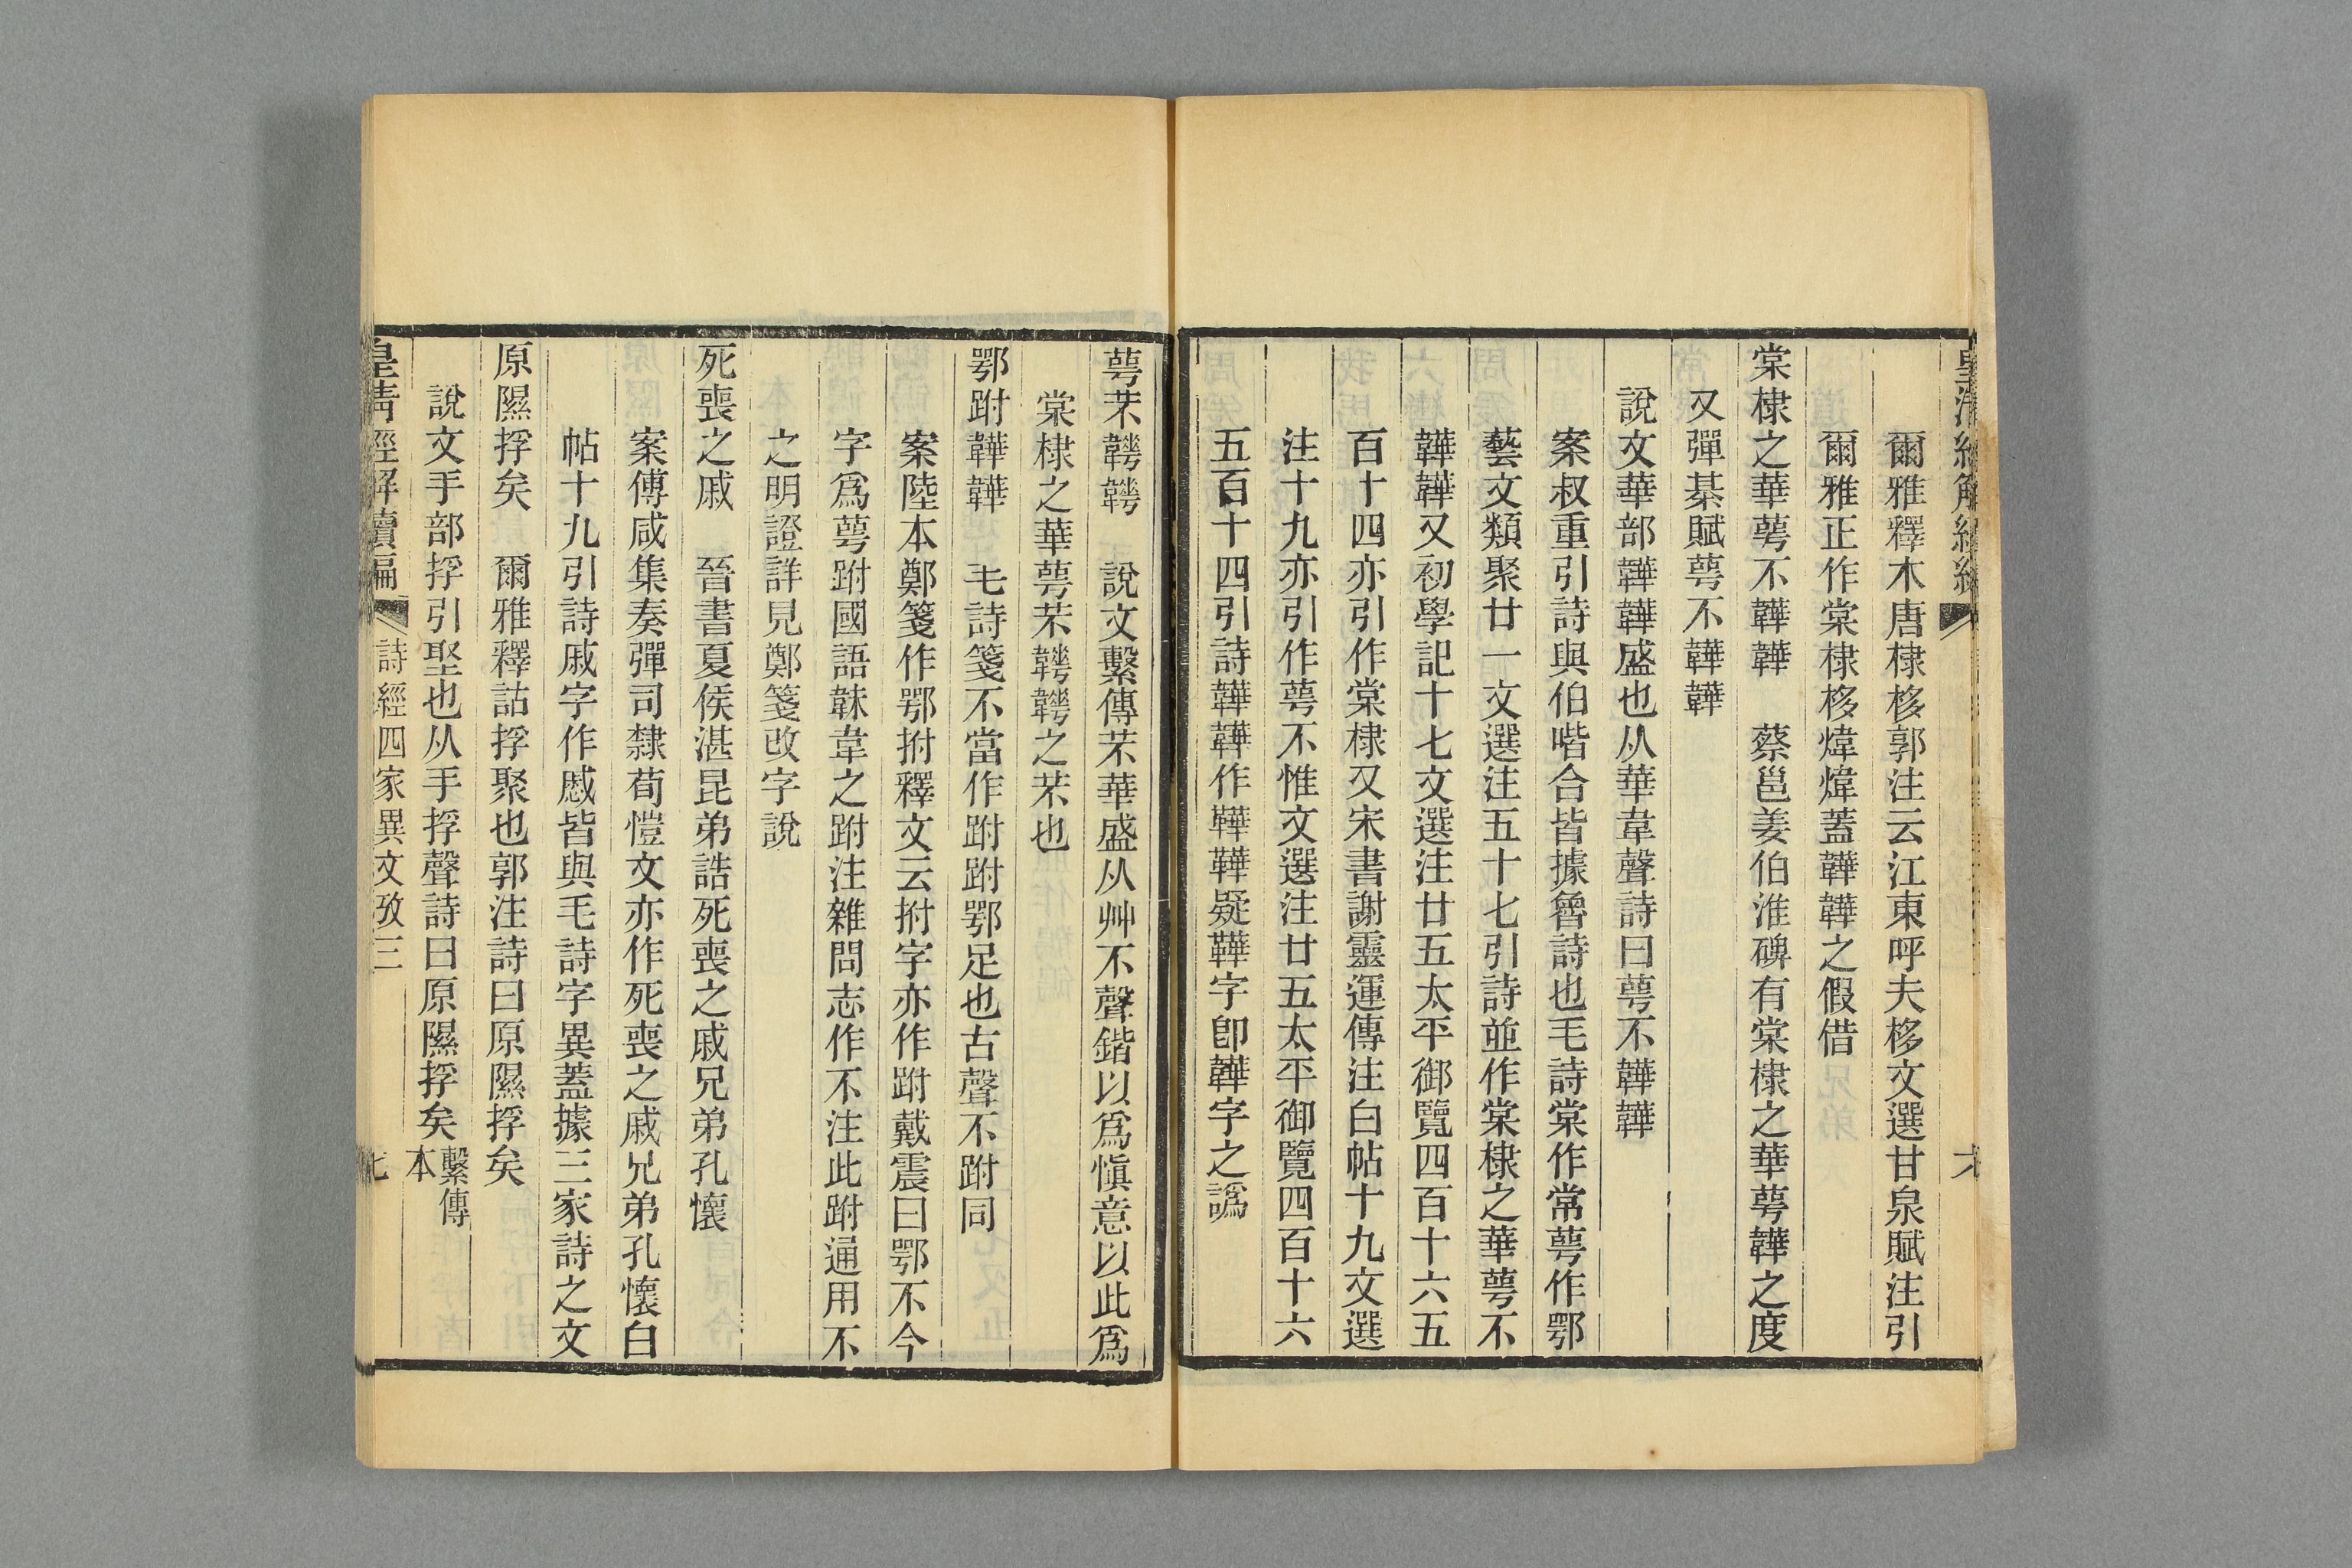 爾雅釋木唐棣栘郭注云江東呼夫栘文選甘泉賦注引
爾雅正作棠棣栘煒煒蓋韡韡之假借
棠棣之華萼不韡韡　蔡邕姜伯淮碑有棠棣之華萼韡之度
又彈棊賦萼不韡韡
說文華部韡韡盛也从華韋聲詩曰萼不韡韡
案叔重引詩與伯喈合皆據魯詩也毛詩棠作常萼作鄂
藝文類聚廿一文選注五十七引詩並作棠棣之華萼不
韡韡又初學記十七文選注廿五太平御覽四百十六五
百十四亦引作棠棣又宋書謝靈運傳注白帖十九文選
注十九亦引作萼不惟文選注廿五太平御覽四百十六
五百十四引詩韡韡作鞾鞾疑鞾字卽韡字之譌
萼芣韡韡　說文繫傳芣華盛从艸不聲鍇以爲愼意以此爲
棠棣之華萼芣韡韡之芣也
鄂跗韡韡　毛詩箋不當作跗跗鄂足也古聲不跗同
案陸本鄭箋作鄂拊釋文云拊字亦作跗戴震曰鄂不今
字爲萼跗國語韎韋之跗注雜問志作不注此跗通用不
之明證詳見鄭箋改字說
死喪之戚　晉書夏侯湛昆弟誥死喪之戚兄弟孔懷
案傅咸集奏彈司隸荀愷文亦作死喪之戚兄弟孔懷白
帖十九引詩戚字作慼皆與毛詩字異蓋據三家詩之文
原隰捊矣　爾雅釋詁捊聚也郭注詩曰原隰捊矣
說文手部捊引堅也从手捊聲詩曰原隰捊矣繫傳本
皇清經解續編　詩經四家異文攷三　七